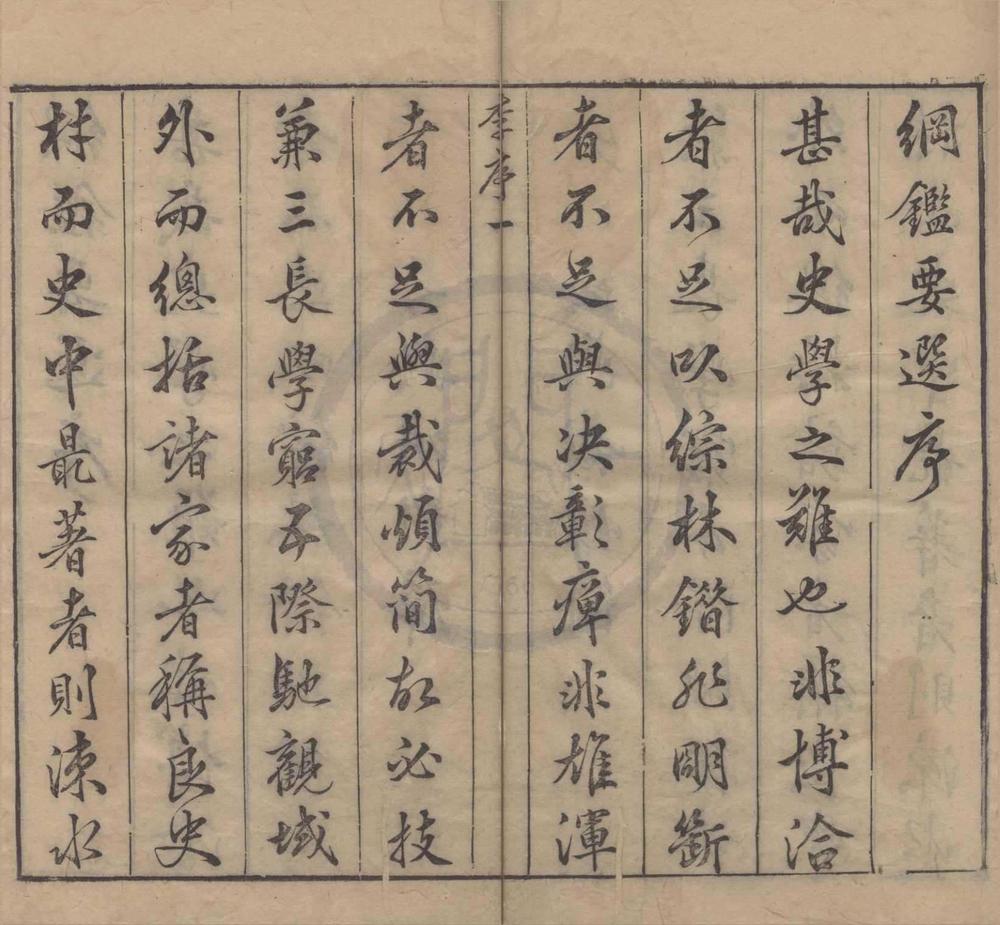 綱鑑要選序
甚哉史學之難也非博洽
者不足以綜林鐕非明斷
者不足與决彰癉非雄渾
李序一
者不足與裁煩簡故必技
兼三長學窮五際馳觀域
外而總括諸家者稱良史
材而史中最著者則涑水